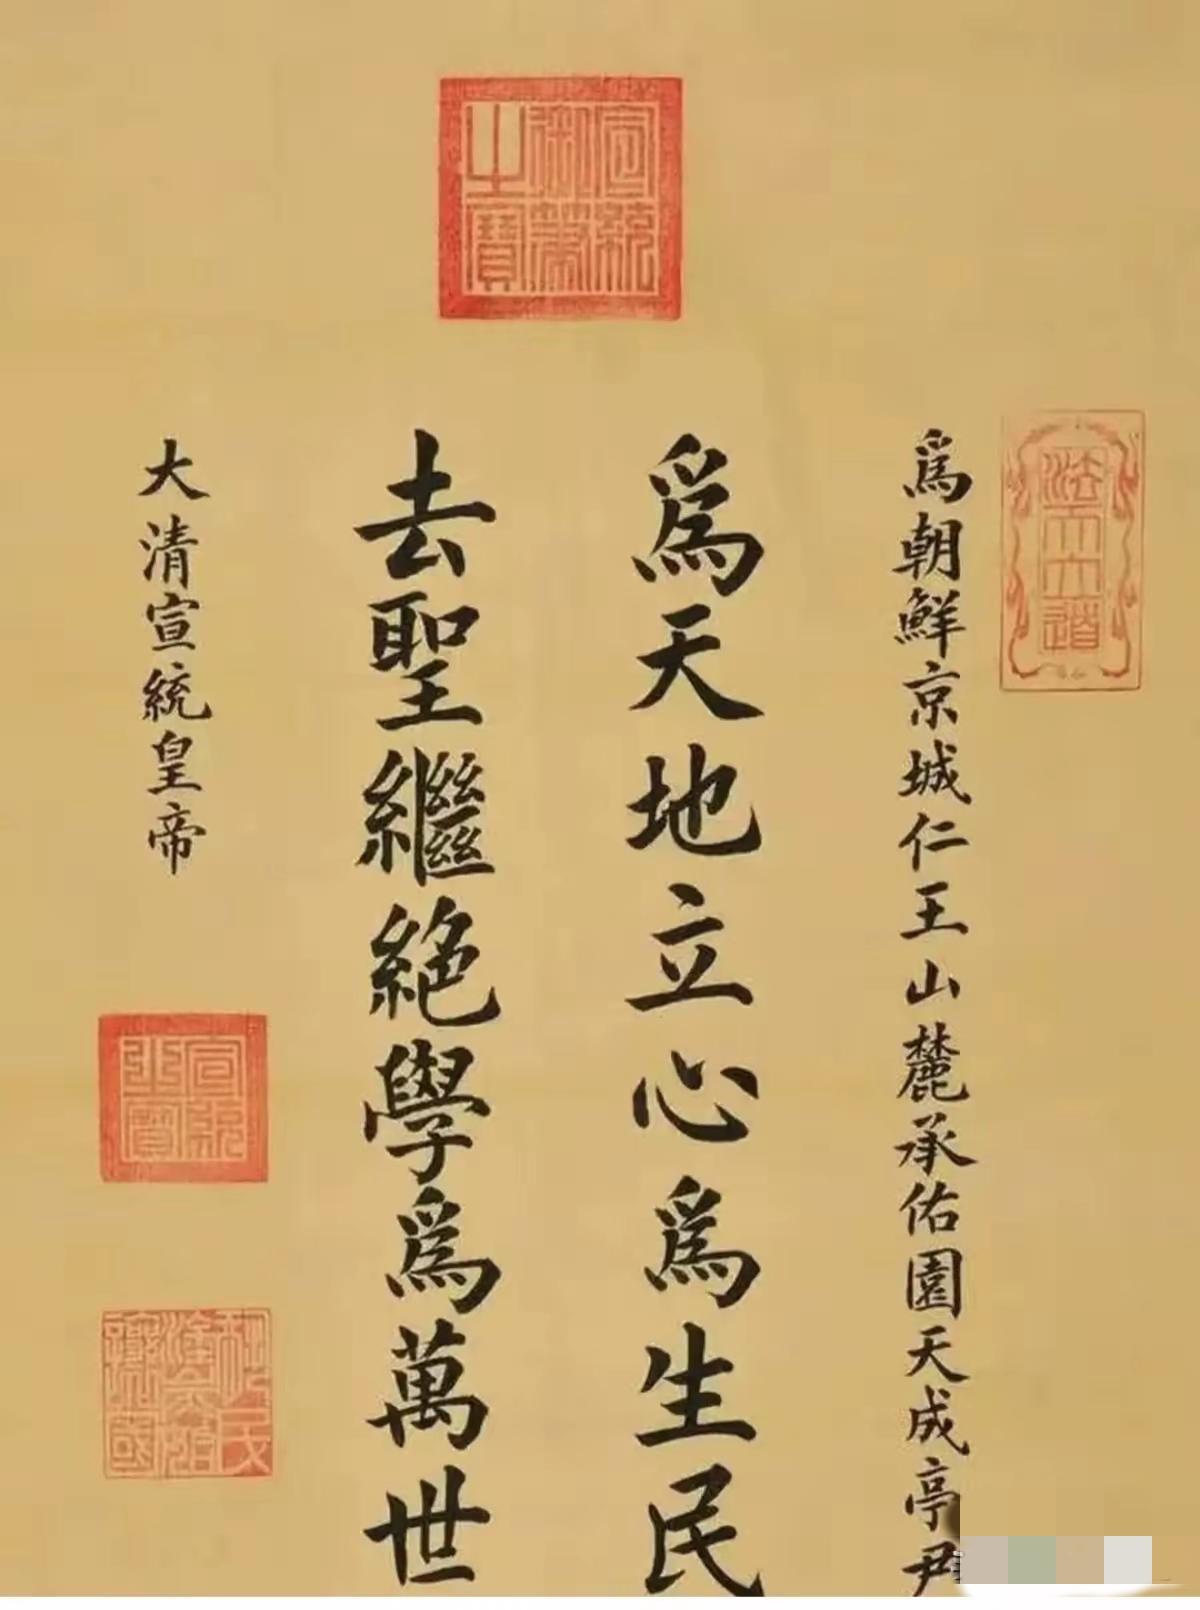 宣統
御筆
之寶
法天立道
爲朝鮮京城仁王山麓承佑園天成亭尹
爲天地立心爲生民
去聖繼絕學爲萬世
大清宣統皇帝
宣統
之寶